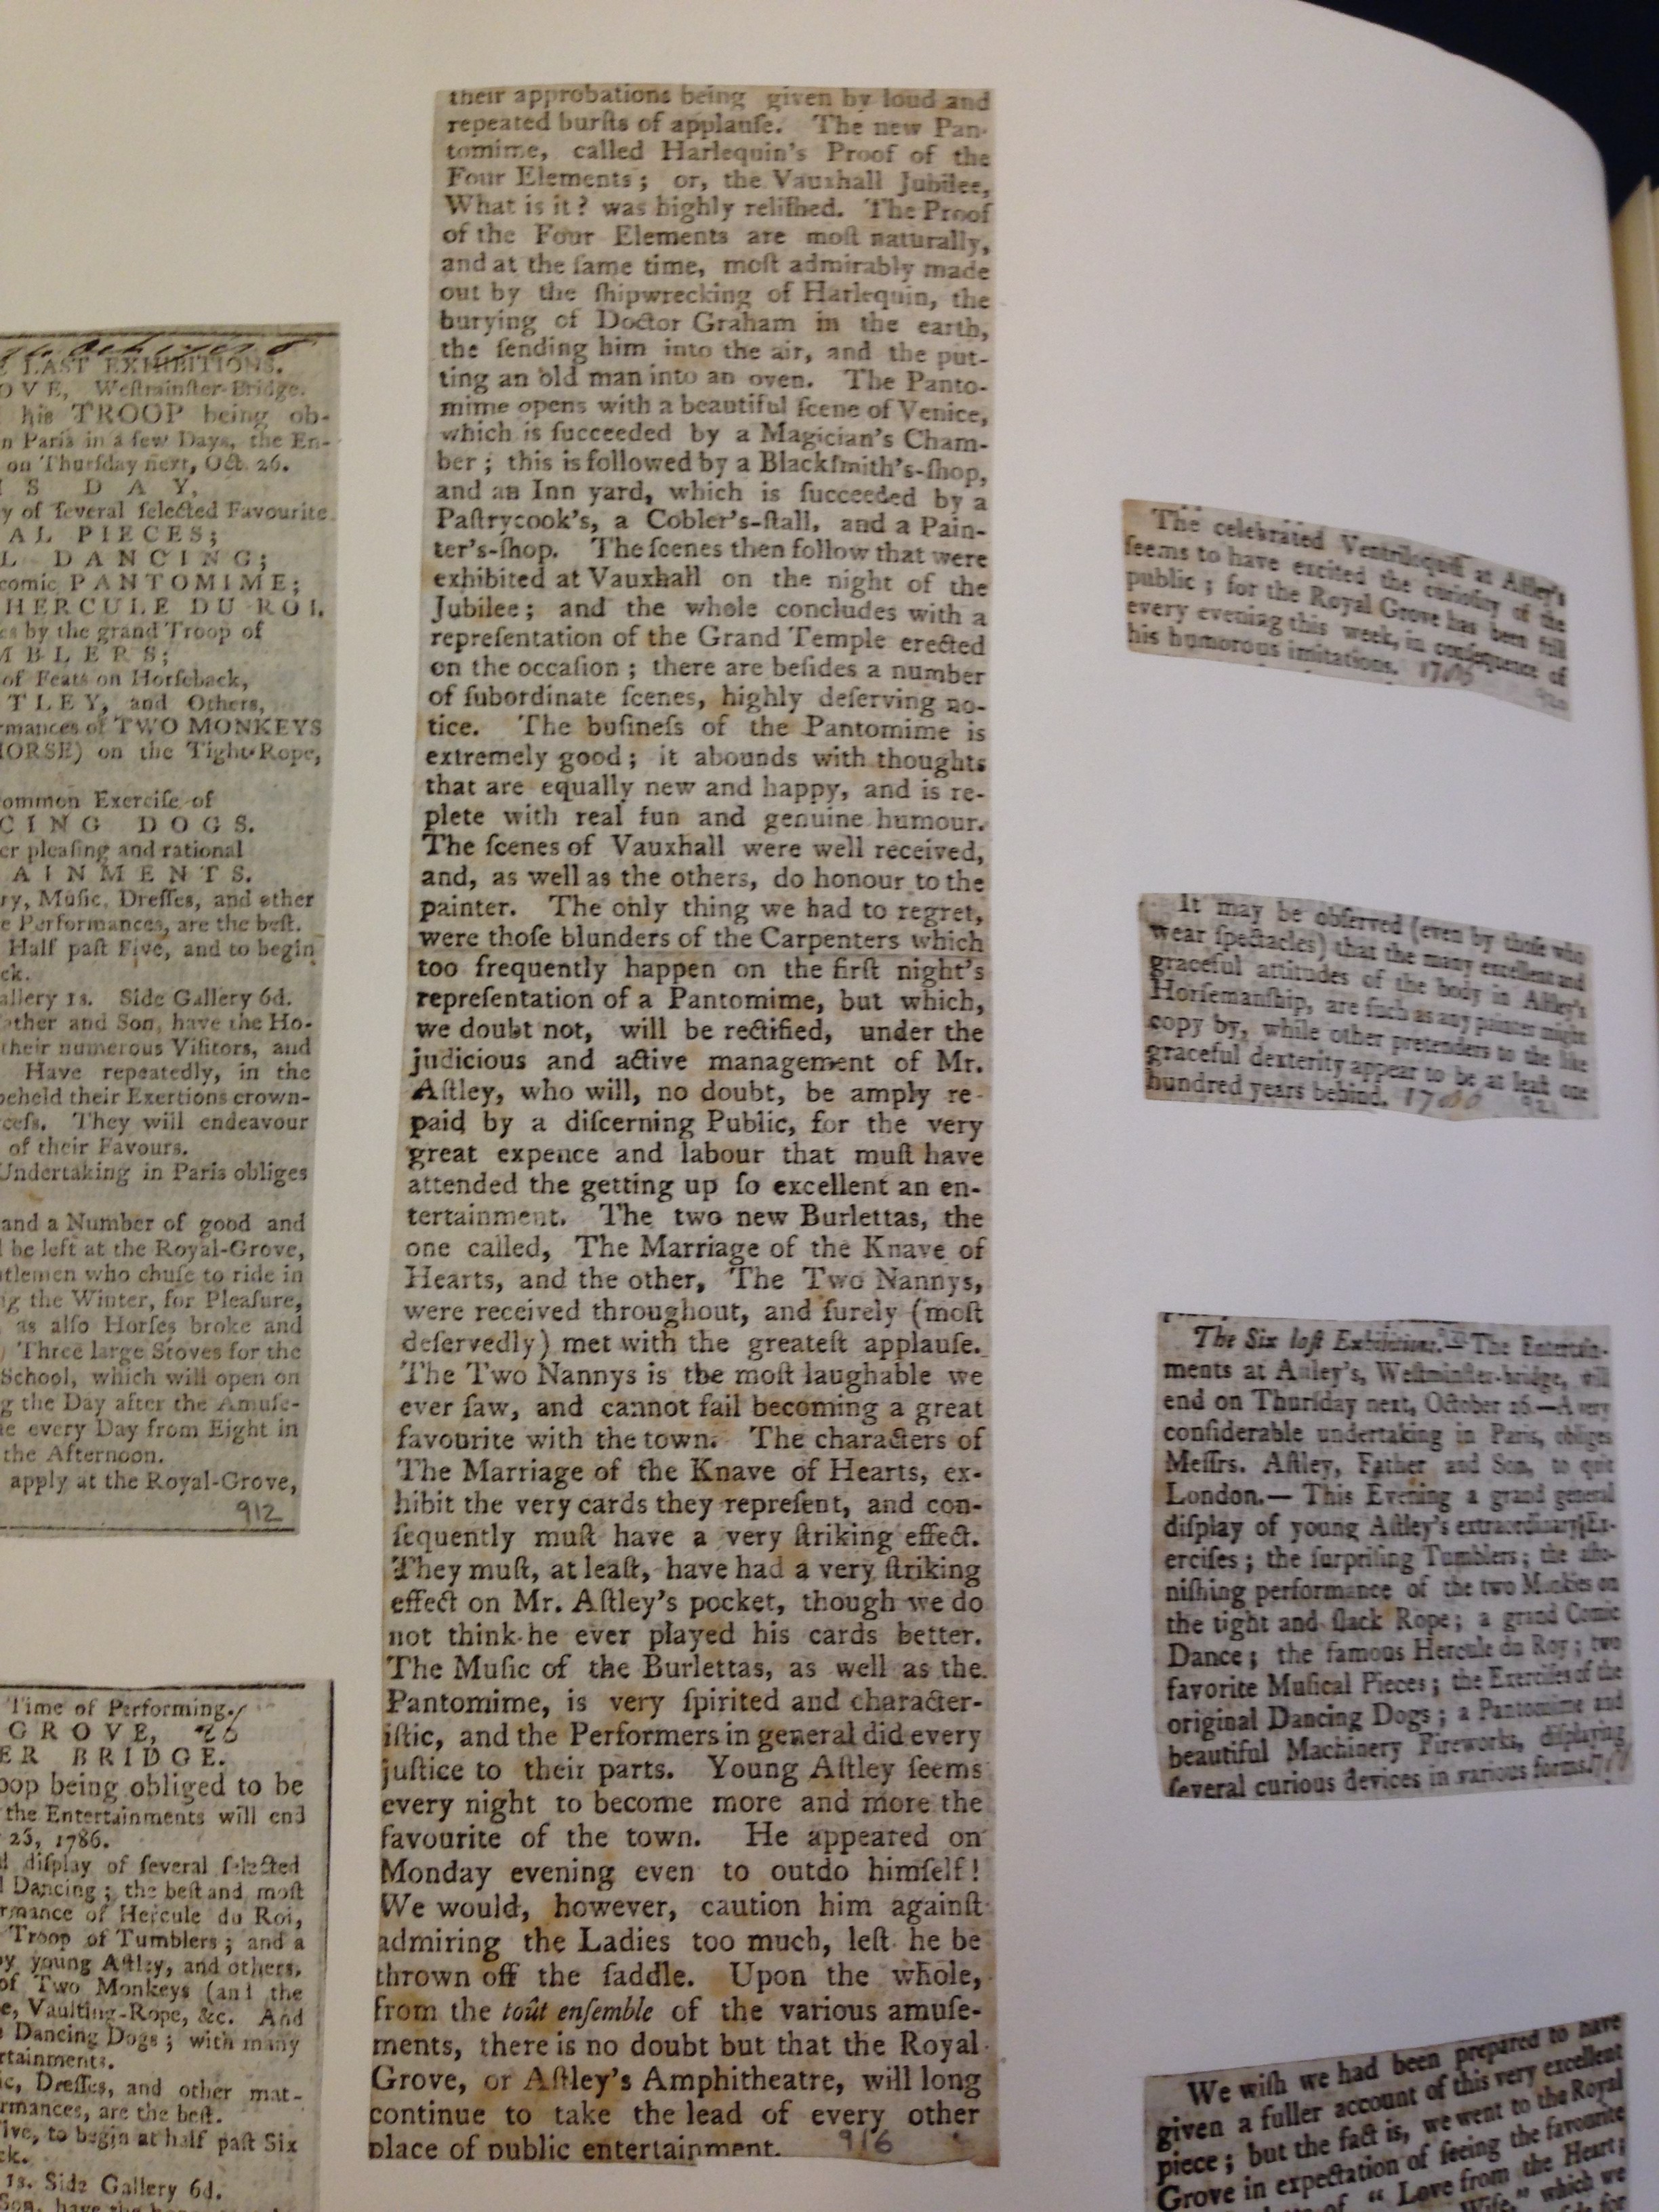 LAST EXHIBITIONS.
OVE, Weſtminſter-Bridge.
his TROOP being ob-
n Paris in a few Days, the En-
on Thurſday next, Oct. 26.
IS DAY,
y of ſeveral ſelected Favourite
AL PIECES;
L DANCING;
comic PANTOMIME;
HERCULE DU ROI.
es by the grand Troop of
MBLERS;
of Feats on Horſeback,
TLEY, and Others,
rmances of TWO MONKEYS
HORSE) on the Tight-Rope,
ommon Exerciſe of
CING DOGS.
er pleaſing and rational
AINMENTS.
ry, Muſic, Dreſſes, and other
e Performances, are the beſt.
Half paſt Five, and to begin
ck.
allery 1s. Side Gallery 6d.
ather and Son, have the Ho-
their numerous Viſitors, and
Have repeatedly, in the
beheld their Exertions crown-
ceſs. They will endeavour
of their Favours.
Undertaking in Paris obliges
and a Number of good and
l be left at the Royal-Grove,
tlemen who chuſe to ride in
ng the Winter, for Pleaſure,
as alſo Horſes broke and
Three large Stoves for the
School, which will open on
g the Day after the Amuſe-
e every Day from Eight in
the Afternoon.
apply at the Royal-Grove,
912
Time of Performing.
GROVE, 26
ER BRIDGE.
oop being obliged to be
the Entertainments will end
26, 1786.
l diſplay of ſeveral ſelected
l Dancing; the beſt and moſt
rmance of Hercule du Roi,
Troop of Tumblers; and a
by young Aſtley, and others.
of Two Monkeys (and the
e, Vaulting-Rope, &c. And
Dancing Dogs; with many
rtainments.
ic, Dreſſes, and other mat-
rmances, are the beſt.
ive, to begin at half paſt Six
ck.
1s. Side Gallery 6d.
Son, have the
their approbations being given by loud and
repeated burſts of applauſe. The new Pan-
tomime, called Harlequin's Proof of the
Four Elements; or, the Vauxhall Jubilee,
What is it? was highly reliſhed. The Proof
of the Four Elements are moſt naturally,
and at the ſame time, moſt admirably made
out by the ſhipwrecking of Harlequin, the
burying of Doctor Graham in the earth,
the ſending him into the air, and the put-
ting an old man into an oven. The Panto-
mime opens with a beautiful ſcene of Venice,
which is ſucceeded by a Magician's Cham-
ber; this is followed by a Blackſmith's-ſhop,
and an Inn yard, which is ſucceeded by a
Paſtrycook's, a Cobler's-ſtall, and a Pain-
ter's-ſhop. The ſcenes then follow that were
exhibited at Vauxhall on the night of the
Jubilee; and the whole concludes with a
repreſentation of the Grand Temple erected
on the occaſion; there are beſides a number
of ſubordinate ſcenes, highly deſerving no-
tice. The buſineſs of the Pantomime is
extremely good; it abounds with thoughts
that are equally new and happy, and is re-
plete with real fun and genuine humour.
The ſcenes of Vauxhall were well received,
and, as well as the others, do honour to the
painter. The only thing we had to regret,
were thoſe blunders of the Carpenters which
too frequently happen on the firſt night's
repreſentation of a Pantomime, but which,
we doubt not, will be rectified, under the
judicious and active management of Mr.
Aſtley, who will, no doubt, be amply re-
paid by a diſcerning Public, for the very
great expence and labour that muſt have
attended the getting up ſo excellent an en-
tertainment. The two new Burlettas, the
one called, The Marriage of the Knave of
Hearts, and the other, The Two Nannys,
were received throughout, and ſurely (moſt
deſervedly) met with the greateſt applauſe.
The Two Nannys is the moſt laughable we
ever ſaw, and cannot fail becoming a great
favourite with the town. The characters of
The Marriage of the Knave of Hearts, ex-
hibit the very cards they repreſent, and con-
ſequently muſt have a very ſtriking effect.
They muſt, at leaſt, have had a very ſtriking
effect on Mr. Aſtley's pocket, though we do
not think he ever played his cards better.
The Muſic of the Burlettas, as well as the
Pantomime, is very ſpirited and character-
iſtic, and the Performers in general did every
juſtice to their parts. Young Aſtley ſeems
every night to become more and more the
favourite of the town. He appeared on
Monday evening even to outdo himſelf!
We would, however, caution him againſt
admiring the Ladies too much, leſt he be
thrown off the ſaddle. Upon the whole,
from the toût enſemble of the various amuſe-
ments, there is no doubt but that the Royal
Grove, or Aſtley's Amphitheatre, will long
continue to take the lead of every other
place of public entertainment. 916
The celebrated Ventriloquiſt at Aſtley's
ſeems to have excited the curioſity of the
public; for the Royal Grove has been full
every evening this week, in conſequence of
his humorous imitations.
It may be obſerved (even by thoſe who
wear ſpectacles) that the many excellent and
graceful attitudes of the body in Aſtley's
Horſemanſhip, are ſuch as any painter might
copy by, while other pretenders to the like
graceful dexterity appear to be at leaſt one
hundred years behind.
The Six laſt Exhibitions.—The Entertain-
ments at Aſtley's, Weſtminſter-bridge, will
end on Thurſday next, October 26.—A very
conſiderable undertaking in Paris, obliges
Meſſrs. Aſtley, Father and Son, to quit
London.—This Evening a grand general
diſplay of young Aſtley's extraordinary Ex-
erciſes; the ſurpriſing Tumblers; the aſto-
niſhing performance of the two Monkies on
the tight and ſlack Rope; a grand Comic
Dance; the famous Hercule du Roy; two
favorite Muſical Pieces; the Exerciſes of the
original Dancing Dogs; a Pantomime and
beautiful Machinery Fireworks, diſplaying
ſeveral curious devices in various forms.
We wiſh we had been prepared to have
given a fuller account of this very excellent
piece; but the fact is, we went to the Royal
Grove in expectation of ſeeing the favourite
of "Love from the Heart;
Wife," which we
for